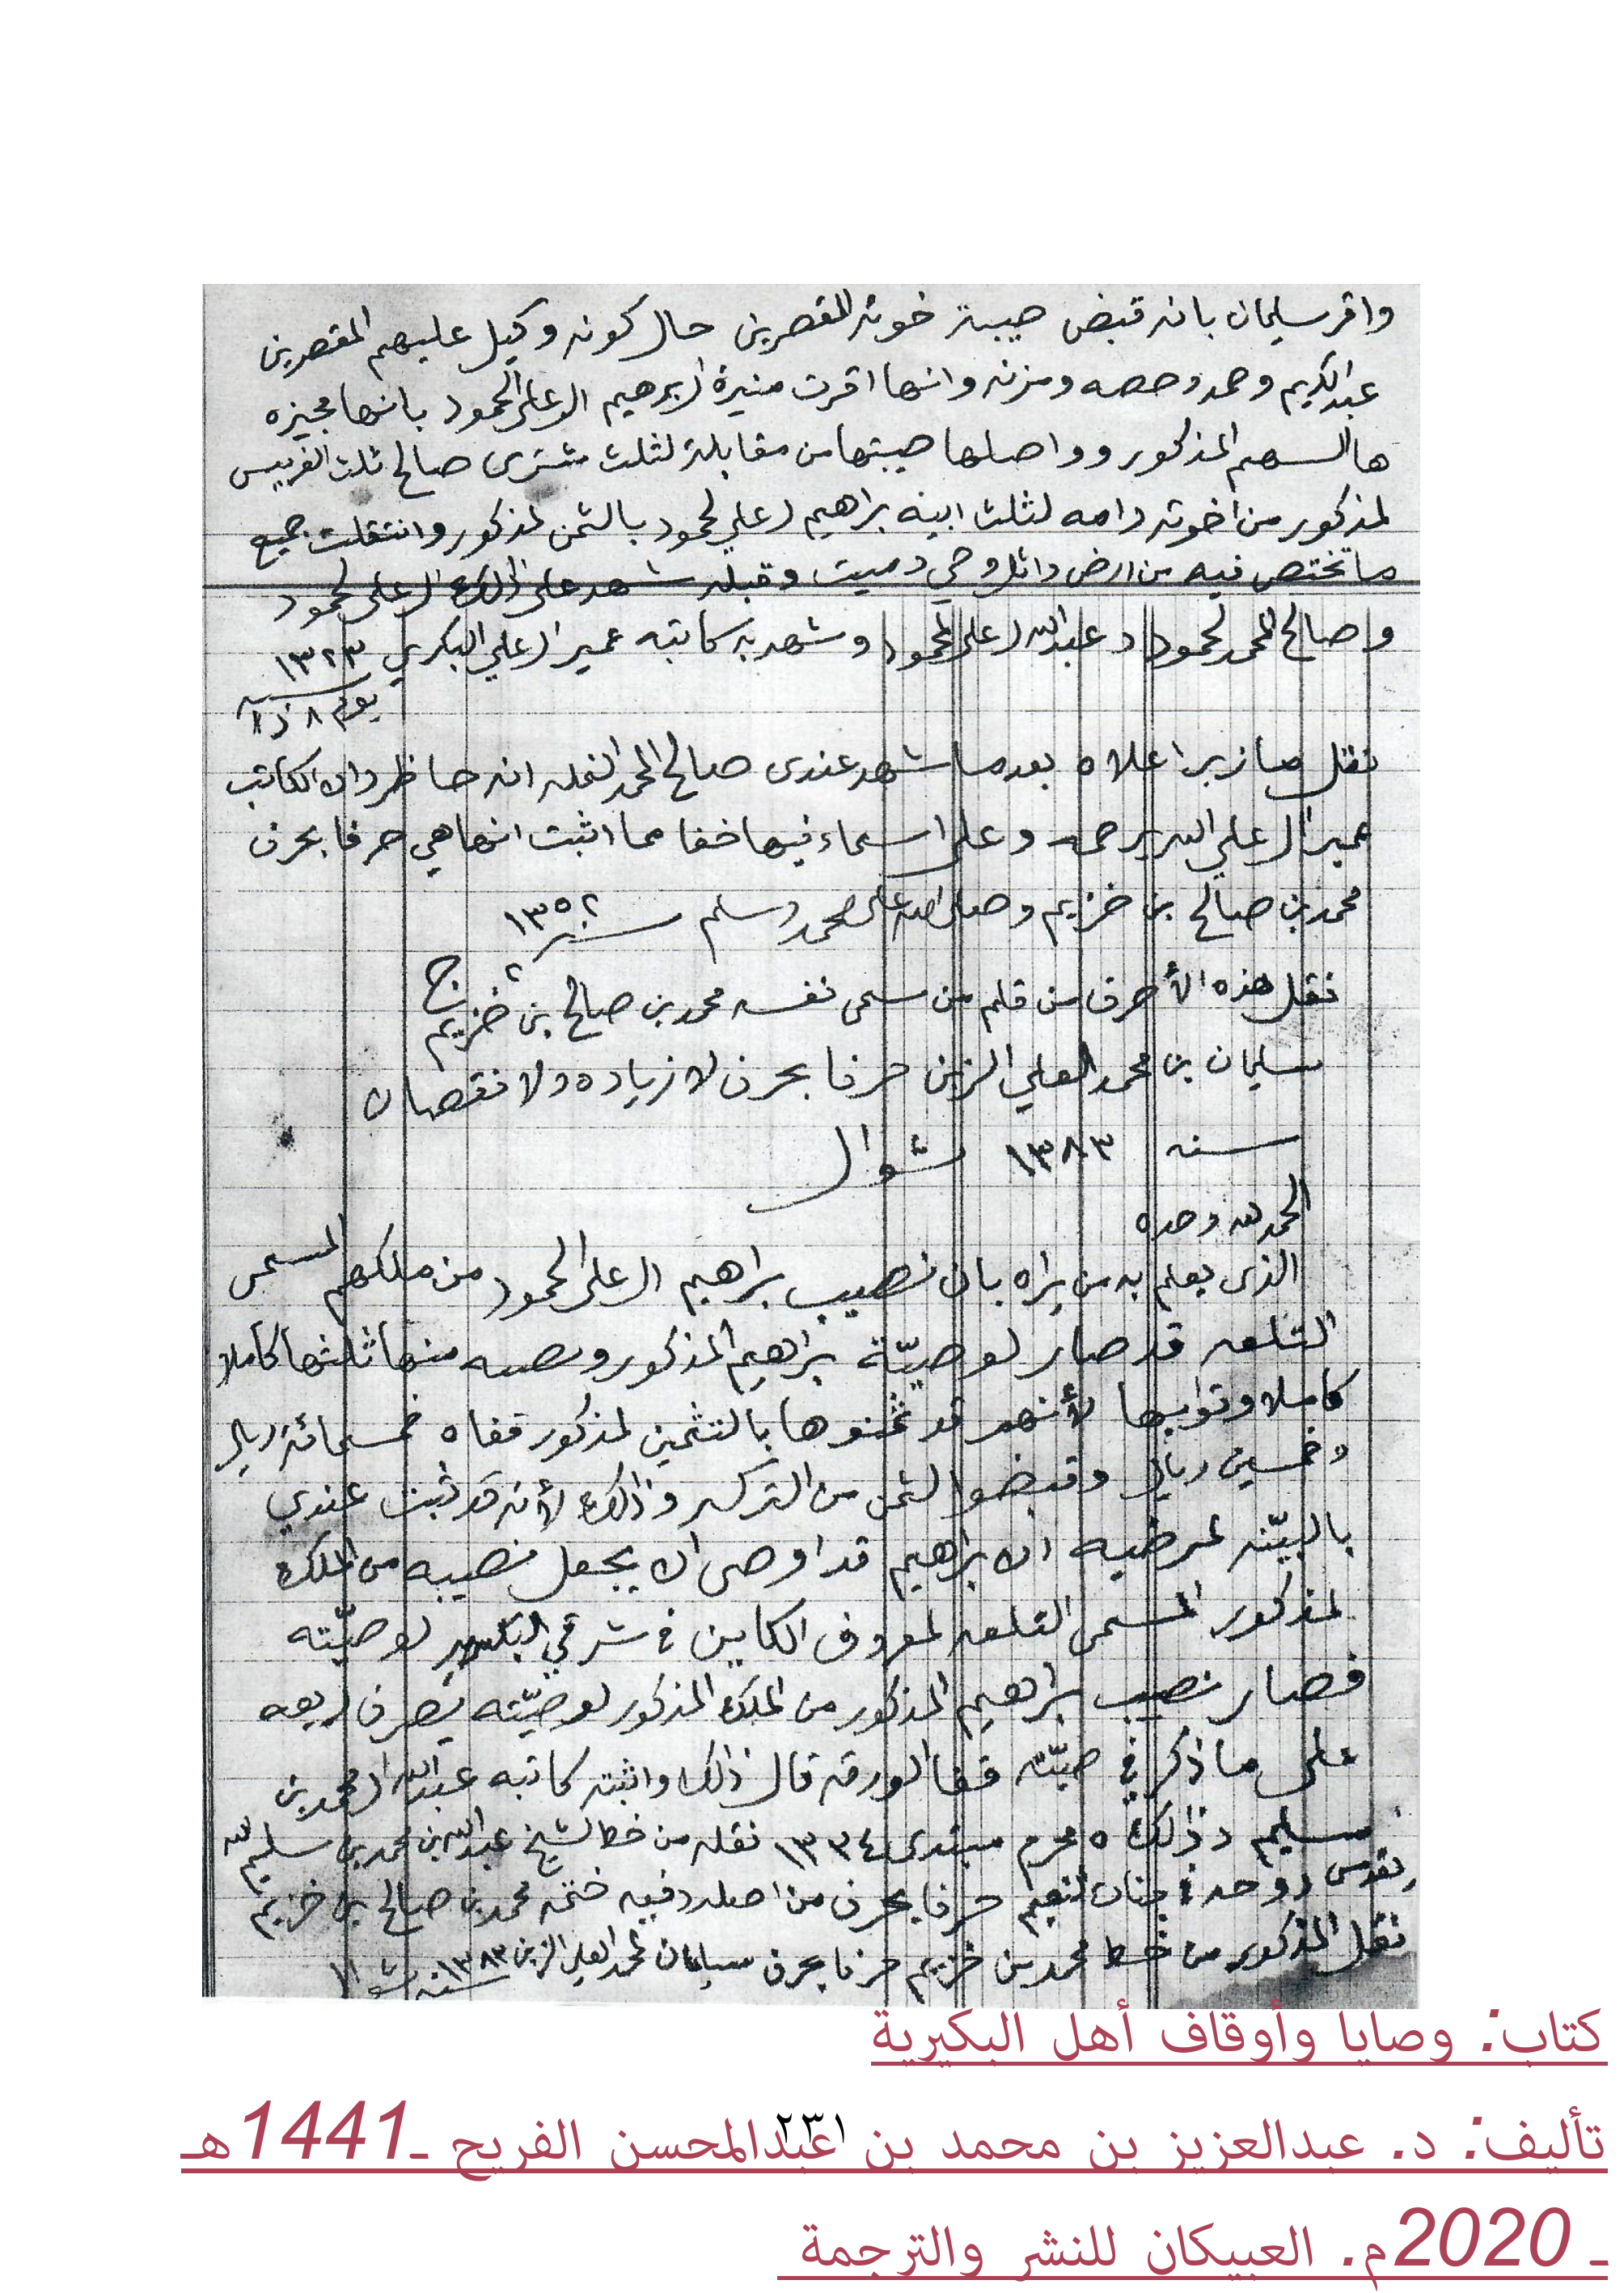 واقر سليمان بانه قبض صيبة خوته المقصرين حال كونه وكيل عليهم المقصرين
عبدالكريم وحمد وحصه ومزنه وانها اقرت منيرة ال برهيم ال علي المحمود بانها مجيزه
هالسهم المذكور وواصلها صيبتها من مقابلة لثلث مشترى صالح ثلث الغريس
لمذكور من اخوته وامه لثلث ابيه براهيم ال علي لمحمود بالثمن لمذكور وانتقلت جميع
ما تختص فيه من ارض واثل وحي وميت وقبله شهد على ذلك ال علي لحمود
وصالح المحمد لحمود وعبدالله ال علي لمحمود وشهد به كاتبه عمير ال علي البكري ١٣٢٣
يوم ٨ ذا
نقل ما زبر اعلاه بعد ما شهد عندى صالح المحمد النمله انه حاظر وان الكاتب
عمير ال علي الله يرحمه وعلى اسماء فيها خفا مما اثبت انها هي حرفا بحرف
محمد بن صالح بن خزيم وصلى الله على محمد وسلم سنة ١٣٥٢
٢ ج
نقل هذه الأحرف من قلم من سمى نفسه محمد بن صالح بن خزيم
سليمان بن محمد العلي الزبن حرفا بحرف لا زياده ولا نقصان
سنه ١٣٨٣ شوال
الحمد لله وحده
الذى يعلم به من يراه بان نصيب براهيم ال على الحمود من ملكهم المسمى
التلعه قد صار لوصيّة براهيم المذكور ونصيبه منها ثلثها كاملا
كاملا وتوابعها لأنهم قد ثمنوها بالتثمين لمذكور قفاه خمسمائة ريال
وخمسين ريال وقبضوا لثمن من التركه وذلك لأنه قد ثبت عندي
بالبيّنه لمرضيه ان براهيم قد اوصى ان يجعل نصيبه من الملك
لمذكور المسمى التلعه لمعروف الكاين في شرقي البكيريه لوصيّته
فصار نصيب براهيم المذكور من الملك المذكور لوصيّته يصرف ريعه
على ما ذكر في صيّته قفا الورقه قال ذلك واثبته كاتبه عبدالله ال محمد بن
سليم وذلك ٥ محرم مبتدى ١٣٣٤ نقله من خط لشيخ عبدالله بن محمد بن سليم لله
يقدس روحه في جنات النعيم حرفا بحرف من اصله وفيه ختمه محمد بن صالح بن خزيم
نقل المذكور من خط محمد بن خزيم حرفا بحرف سليمان لمحمد العلي الزبن ١٣٨٣ سنه
كتاب: وصايا وأوقاف أهل البكيرية
تأليف: د. عبدالعزيز بن محمد بن عبدالمحسن الفريح ـ1441هـ
٢٣١
ـ 2020م. العبيكان للنشر والترجمة